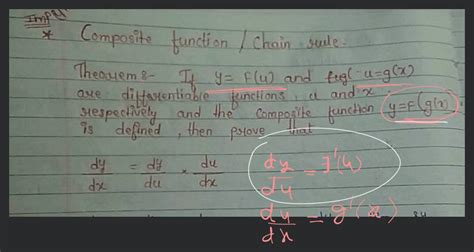 Imp
* Composite function / Chain rule.
Theorem :- If y = F(u) and u=g(x)
are differentiable functions, u and x
respectively and the composite function y=F(g(x)
is defined, then prove that
dy/dx = dy/du × du/dx
dy/du = F'(u)
du/dx = g'(x)